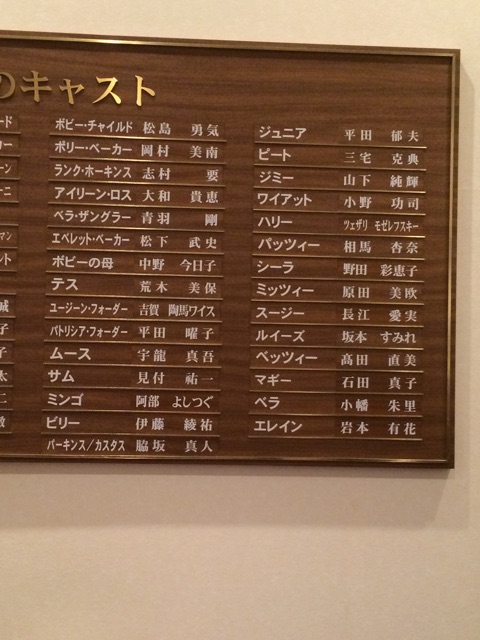 のキャスト
ボビー・チャイルド 松島 勇気
ポリー・ベーカー 岡村 美南
ランク・ホーキンス 志村 要
アイリーン・ロス 大和 貴恵
ベラ・ザングラー 青羽 剛
エベレット・ベーカー 松下 武史
ボビーの母 中野 今日子
テス 荒木 美保
ユージーン・フォーダー 吉賀 陶馬ワイス
パトリシア・フォーダー 平田 曜子
ムース 宇龍 真吾
サム 見付 祐一
ミンゴ 阿部 よしつぐ
ビリー 伊藤 綾祐
パーキンス/カスタス 脇坂 真人
ジュニア 平田 郁夫
ピート 三宅 克典
ジミー 山下 純輝
ワイアット 小野 功司
ハリー ツェザリ モゼレフスキー
パッツィー 相馬 杏奈
シーラ 野田 彩恵子
ミッツィー 原田 美欧
スージー 長江 愛実
ルイーズ 坂本 すみれ
ベッツィー 高田 直美
マギー 石田 真子
ベラ 小幡 朱里
エレイン 岩本 有花